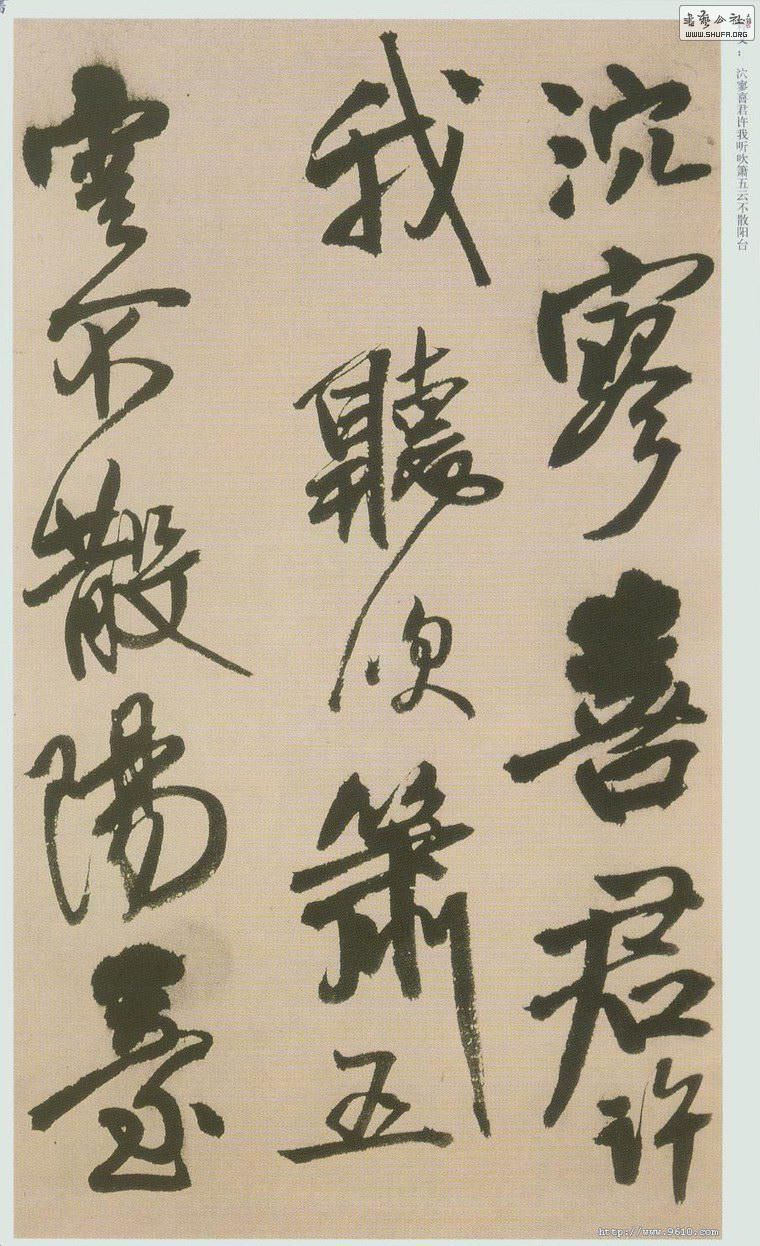 泬寥喜君许
我聽吹簫五
雲不散陽臺
：泬寥喜君许我听吹箫五云不散阳台
書藝公社
WWW.SHUFA.ORG
http://www.9610.com